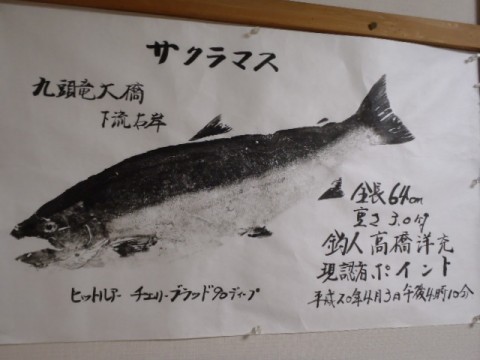 サクラマス
九頭竜大橋
下流右岸
全長64cm
重さ3.0kg
釣人 高橋洋充
現認者 ポイント
平成20年4月3日午後4時10分
ヒットルアー チェリーブラッド90ディープ